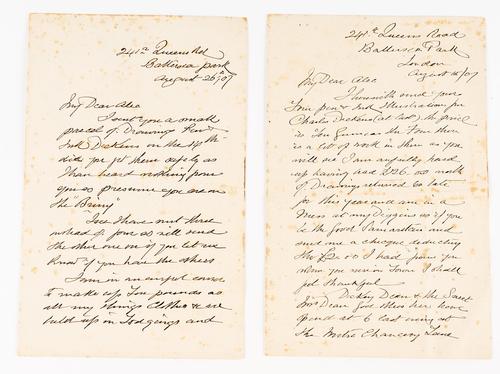 241A Queens Rd
Battersea Park
August 26th/07
My Dear Alec
I sent you a small
parcel of Drawings Pen &
Ink Dickens on the 14th
did you get them safely as
I have heard nothing from
you so presume you are on
the Briny
I see I have sent three
instead of four so will send
the other one on if you let me
know if you have the others
I am in an awful
to make up Ten pounds as
all my things clothes & are
held up in Lodgings and
241A Queens Road
Battersea Park
London
August 14/07
My Dear Alec
I herewith send you
Four pen & Ink Illustrations for
Charles Dickens (at last) the price
is Ten Guineas the Four there
is a lot of work in them as you
will see I am awfully hard
up having had worth
of Drawings returned to date
for this year and am in a
Mess at my Diggings so if you
be the good Samaritan and
send me a cheque deducting
the I had from you
when you were in Town I shall
feel thankful
Dickey Dean & the Sweet
Mrs Dean God bless her have
at 6 last evening at
the Chancery Lane